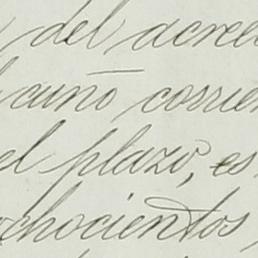 del acree
cuño corrien
el plazo, es
ochocientos,